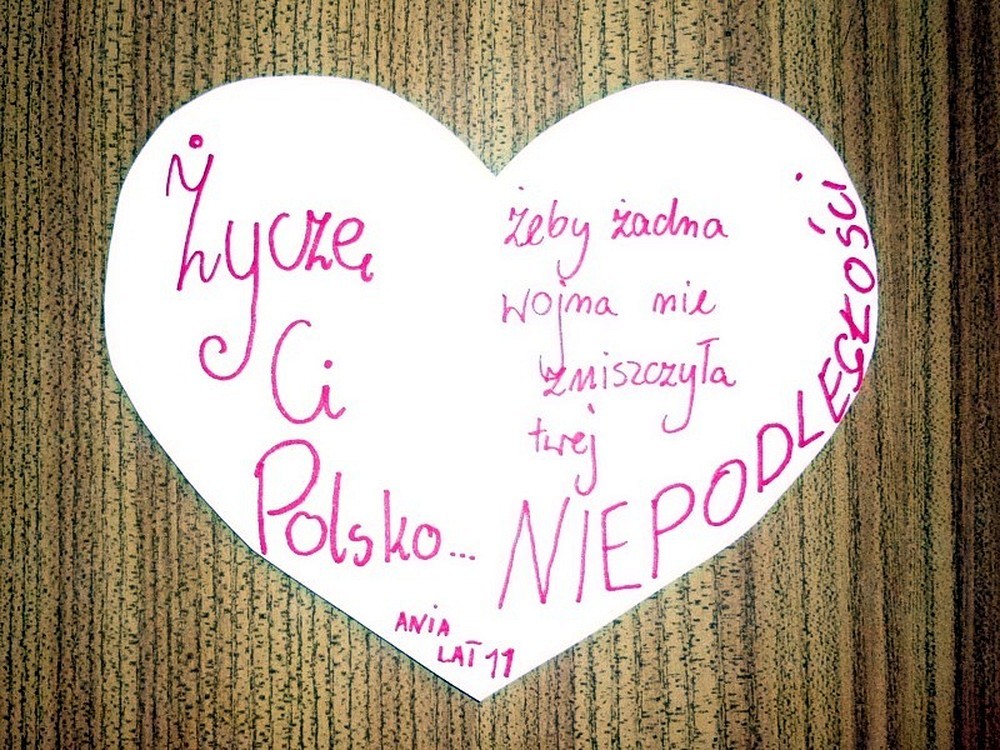 Życzę
Ci
Polsko...
żeby żadna
wojna nie
zniszczyła
twej
NIEPODLEGŁOŚCI
ANIA
LAT 11